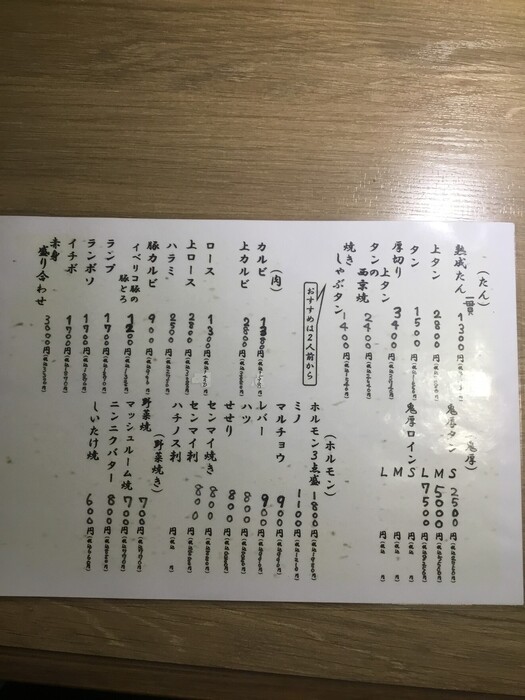 (たん)
熟成たん一貫 1300円
上タン 2800円
タン 1500円
厚切り上タン 3400円
タンの西京焼 2400円
焼きしゃぶタン 1400円
おすすめは2人前から
(肉)
カルビ
上カルビ
ロース 1300円
上ロース 2800円
ハラミ 2500円
豚カルビ 900円
イベリコ豚の豚とろ 1200円
ランプ 1700円
ランボソ 1700円
イチボ 1700円
赤身盛り合わせ 3800円
鬼厚
鬼厚タン S 2500円
M 5000円
L 7500円
鬼厚ロイン S 円(税込 円)
M 円(税込 円)
L 円(税込 円)
(ホルモン)
ホルモン3点盛 1800円(税込1980円)
ミノ 1100円(税込1210円)
マルチョウ 900円(税込990円)
レバー 900円(税込990円)
ハツ 800円(税込880円)
せせり 800円(税込880円)
センマイ焼き 800円(税込880円)
センマイ刺 800円(税込880円)
ハチノス刺 円(税込 円)
(野菜焼き)
野菜焼 700円
マッシュルーム焼 700円
ニンニクバター 800円
しいたけ焼 600円(税込660円)